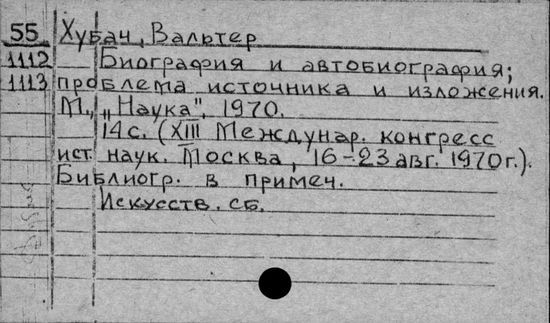 55 Хубач, Вальтер
1112 Биография и автобиография;
1113 проблема источника и изложения.
М., „Наука", 1970.
14с. (XIII Междунар. конгресс
ист. наук. Москва, 16-23 авг. 1970г.).
Библиогр. в примеч.
Искусств. сб.